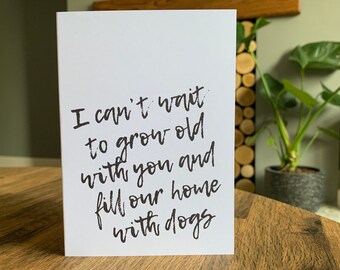 I can't wait
to grow old
with you and
fill our home
with dogs